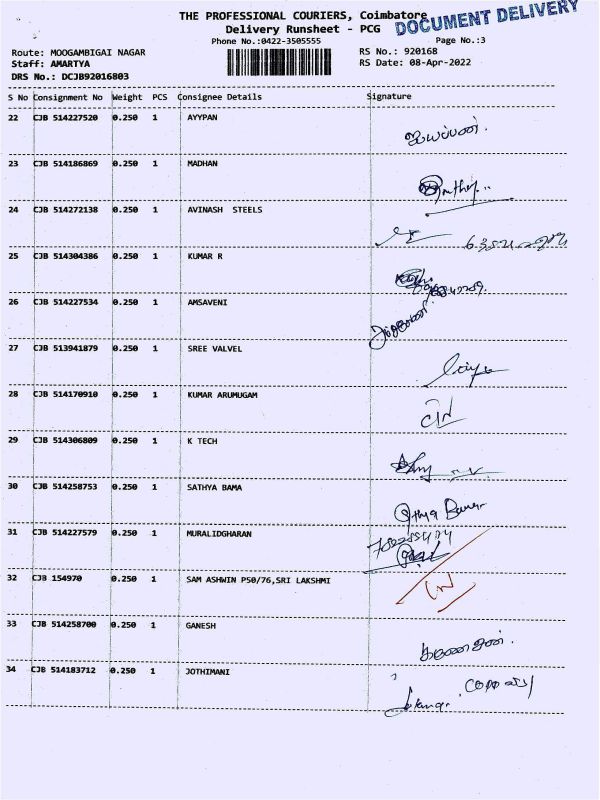 THE PROFESSIONAL COURIERS, Coimbatore
DOCUMENT DELIVERY
Delivery Runsheet - PCG
Phone No.:0422-3505555
Page No.:3
Route: MOOGAMBIGAI NAGAR
RS No.: 920168
Staff: AMARTYA
RS Date: 08-Apr-2022
DRS No.: DCJB92016803
S No Consignment No Weight PCS Consignee Details Signature
22 CJB 514227520 0.250 1 AYYPAN
ஐயப்பன்.
23 CJB 514186869 0.250 1 MADHAN
24 CJB 514272138 0.250 1 AVINASH STEELS
25 CJB 514304386 0.250 1 KUMAR R
26 CJB 514227534 0.250 1 AMSAVENI
27 CJB 513941879 0.250 1 SREE VALVEL
28 CJB 514170910 0.250 1 KUMAR ARUMUGAM
29 CJB 514306809 0.250 1 K TECH
30 CJB 514258753 0.250 1 SATHYA BAMA
31 CJB 514227579 0.250 1 MURALIDGHARAN
32 CJB 154970 0.250 1 SAM ASHWIN P50/76,SRI LAKSHMI
33 CJB 514258700 0.250 1 GANESH
கணேசன்.
34 CJB 514183712 0.250 1 JOTHIMANI